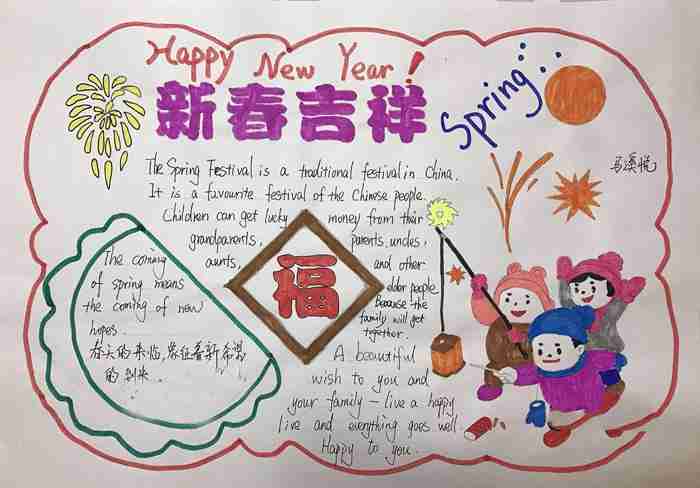 Happy New Year!
新春吉祥
Spring
马溪悦
The Spring Festival is a traditional festival in China.
It is a favourite festival of the Chinese people.
Children can get lucky money from their
grandparents, parents, uncles,
aunts, and other
elder people.
Because the
family will get
together.
福
The coming
of spring means
the coming of new
hopes
春天的来临,象征着新希望
的到来
A beautiful
wish to you and
your family - live a happy
live and everything goes well.
Happy to you.